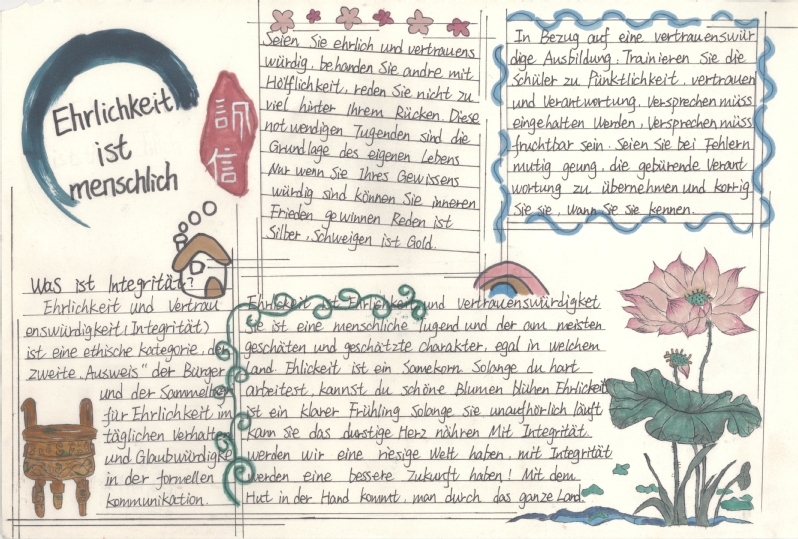 Ehrlichkeit
ist
menschlich
訫
信
Seien Sie ehrlich und vertrauens
würdig, behanden Sie andre mit
Höfflichkeit, reden Sie nicht zu
viel hinter Ihrem Rücken. Diese
notwendigen Tugenden sind die
Grundlage des eigenen Lebens
Nur wenn Sie Ihres Gewissens
würdig sind können Sie inneren
Frieden gewinnen Reden ist
Silber, Schweigen ist Gold.
In Bezug auf eine vertrauenswür
dige Ausbildung. Trainieren Sie die
Schüler zu Pünktlichkeit, vertrauen
und Verantwortung. Versprechen müss
eingehalten werden, Versprechen müss
fruchtbar sein. Seien Sie bei Fehlern
mutig geung, die gebürende Verant
wortung zu übernehmen und korrig
Sie sie, wann Sie sie kennen.
Was ist Integrität?
Ehrlichkeit und Vertrau
enswürdigkeit (Integrität)
ist eine ethische Kategorie, der
zweite „Ausweis" der Bürger
und der Sammelbegr
für Ehrlichkeit im
täglichen Verhalten
und Glaubwürdigke
in der formellen
kommunikation.
Ehrlickeit ist Ehrlichkeit und vertrauenswürdigket
Sie ist eine menschliche Tugend und der am meisten
geschäten und geschätzte charakter, egal in welchem
Land. Ehlickeit ist ein Samekorn Solange du hart
arbeitest, kannst du schöne Blumen blühen Ehrlickeit
ist ein klarer Frühling Solange sie unaufhörlich läuft
kann Sie das durstige Herz nähren Mit Integrität
werden wir eine riesige Welt haben, mit Integrität
werden eine bessere Zukunft haben! Mit dem
Hut in der Hand kommt, man durch das ganze Land.